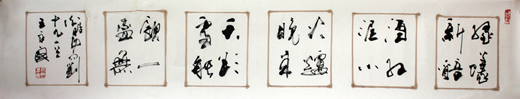 綠蟻
新醅
酒紅
泥小
火爐
晚來
天欲
雪能
飲一
盃無
問劉
十九